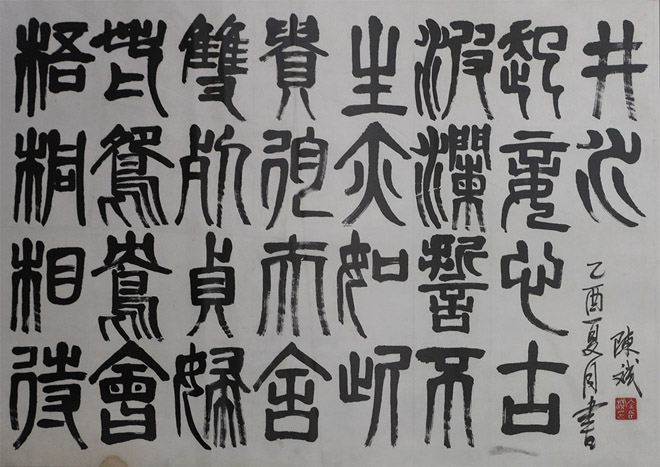 梧桐相待
老鴛鴦會
雙死貞婦
貴殉夫舍
生亦如此
波瀾誓不
起妾心古
井水
乙酉夏月書
陳